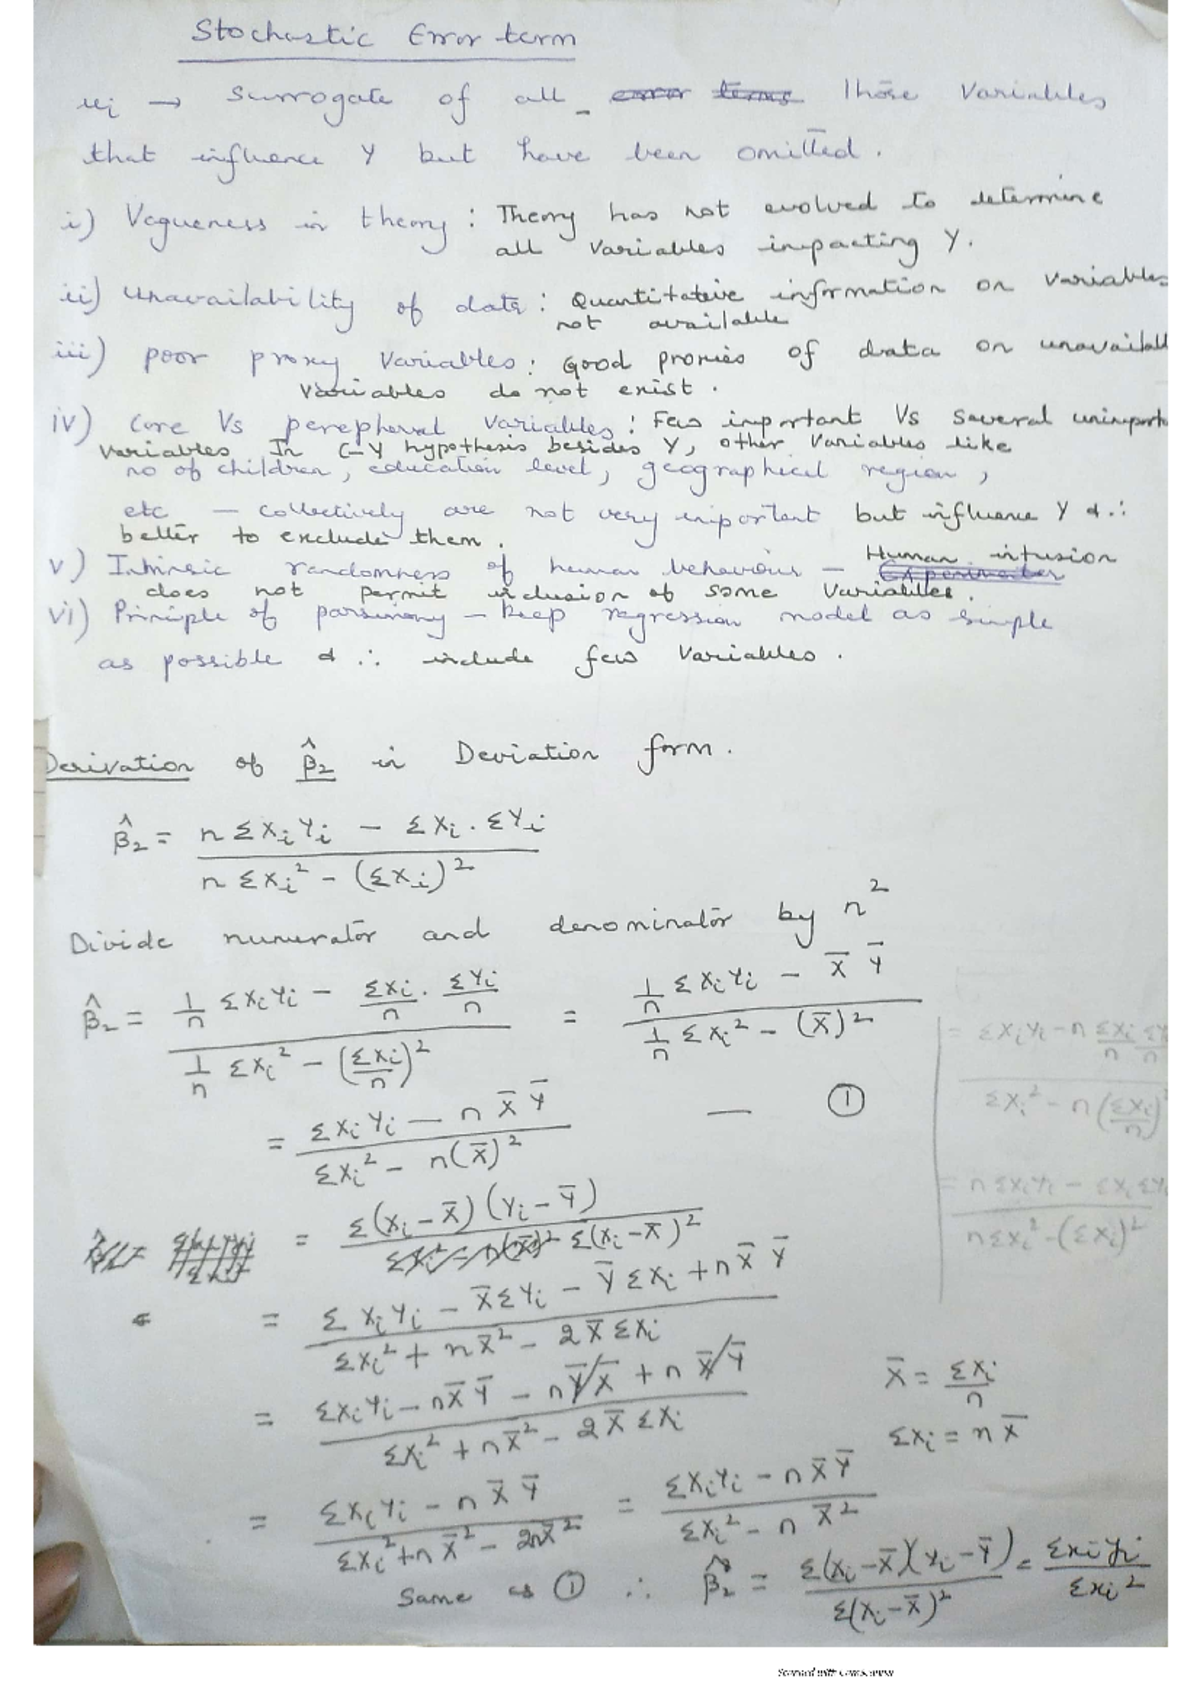 Stochastic Error term
ui → Surrogate of all error terms those variables
that influence Y but have been omitted.
i) Vagueness in theory : Theory has not evolved to determine
all variables impacting Y.
ii) Unavailability of data : Quantitative information on variables
not available
iii) poor proxy variables : Good proxies of data on unavailabl
variables do not exist.
iv) Core Vs perepheral variables : Few important Vs several unimport
variables In C-Y hypothesis besides Y, other variables like
no of children, education level, geographical region,
etc — collectively are not very important but influence Y & ∴
better to exclude them.
v) Intrinsic randomness of human behaviour — Human intusion
does not permit inclusion of some variables.
vi) Principle of parsimony — keep regression model as simple
as possible & ∴ include few variables.
Derivation of β̂2 in Deviation form.
β̂2 = n ΣXiYi − ΣXi . ΣYi
n ΣXi² − (ΣXi)²
Divide numerator and denominator by n²
β̂2 = 1/n ΣXiYi − ΣXi/n . ΣYi/n = 1/n ΣXiYi − X̄ Ȳ
1/n ΣXi² − (ΣXi/n)² 1/n ΣXi² − (X̄)²
= ΣXiYi − n X̄ Ȳ — ①
ΣXi² − n(X̄)²
= ΣXiYi − n ΣXi/n ΣY/n
ΣXi² − n(ΣXi/n)²
= nΣXiYi − ΣXiΣY
nΣXi² − (ΣXi)²
= Σ(Xi − X̄)(Yi − Ȳ)
ΣXi² − n(X̄)² Σ(Xi − X̄)²
= ΣXiYi − X̄ΣYi − ȲΣXi + nX̄ Ȳ
ΣXi² + nX̄² − 2X̄ΣXi
= ΣXiYi − nX̄ Ȳ − nȲX̄ + nX̄Ȳ
ΣXi² + nX̄² − 2X̄ΣXi
X̄ = ΣXi/n
ΣXi = nX̄
= ΣXiYi − nX̄ Ȳ = ΣXiYi − nX̄Ȳ
ΣXi² + nX̄² − 2nX̄² ΣXi² − nX̄²
Same as ① ∴ β̂2 = Σ(Xi − X̄)(Yi − Ȳ) = Σxiyi
Σ(Xi − X̄)² Σxi²